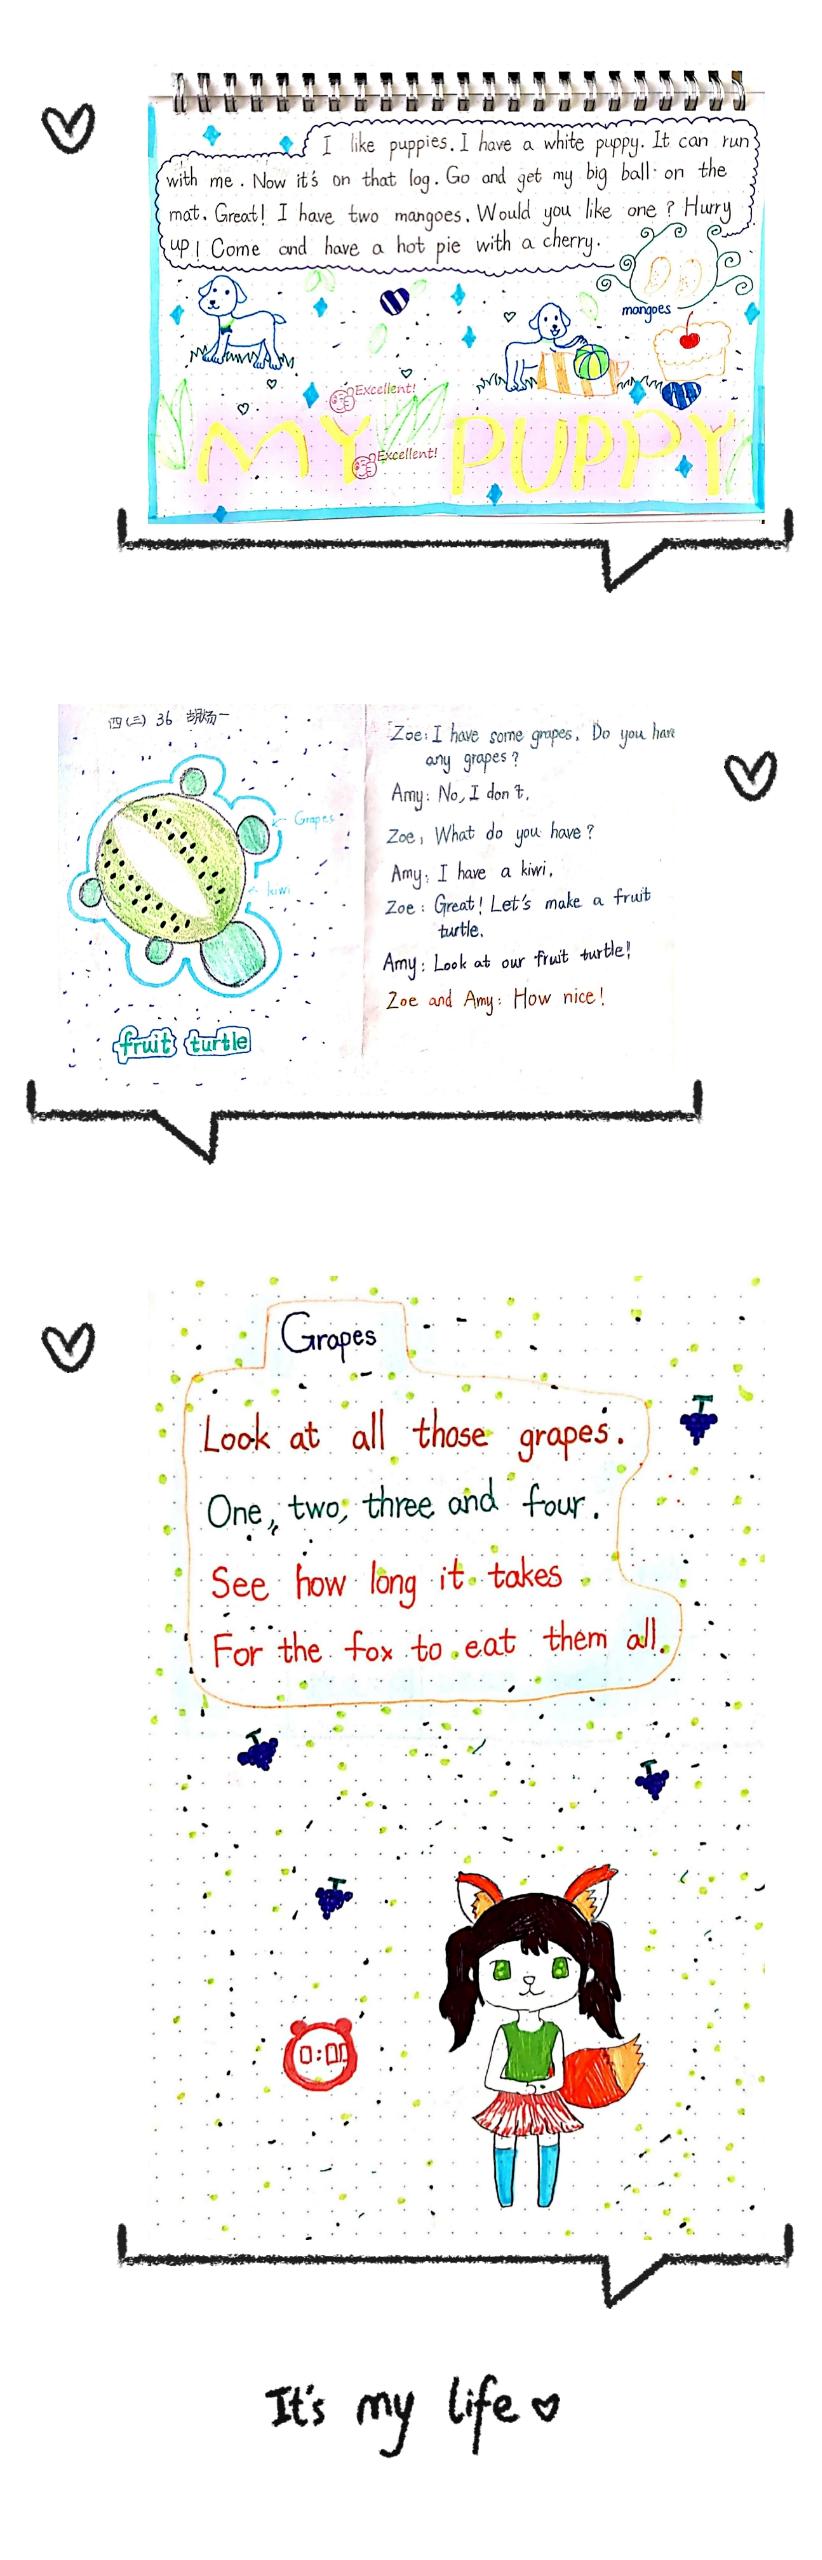 I like puppies. I have a white puppy. It can run
with me. Now it's on that log. Go and get my big ball on the
mat. Great! I have two mangoes. Would you like one? Hurry
up! Come and have a hot pie with a cherry.
mangoes
Excellent!
Excellent!
MY PUPPY
四(三) 36 胡炀一
Grapes
kiwi
fruit turtle
Zoe: I have some grapes. Do you have
any grapes?
Amy: No, I don't.
Zoe: What do you have?
Amy: I have a kiwi.
Zoe: Great! Let's make a fruit
turtle.
Amy: Look at our fruit turtle!
Zoe and Amy: How nice!
Grapes
Look at all those grapes.
One, two, three and four.
See how long it takes
For the fox to eat them all.
0:00
It's my life